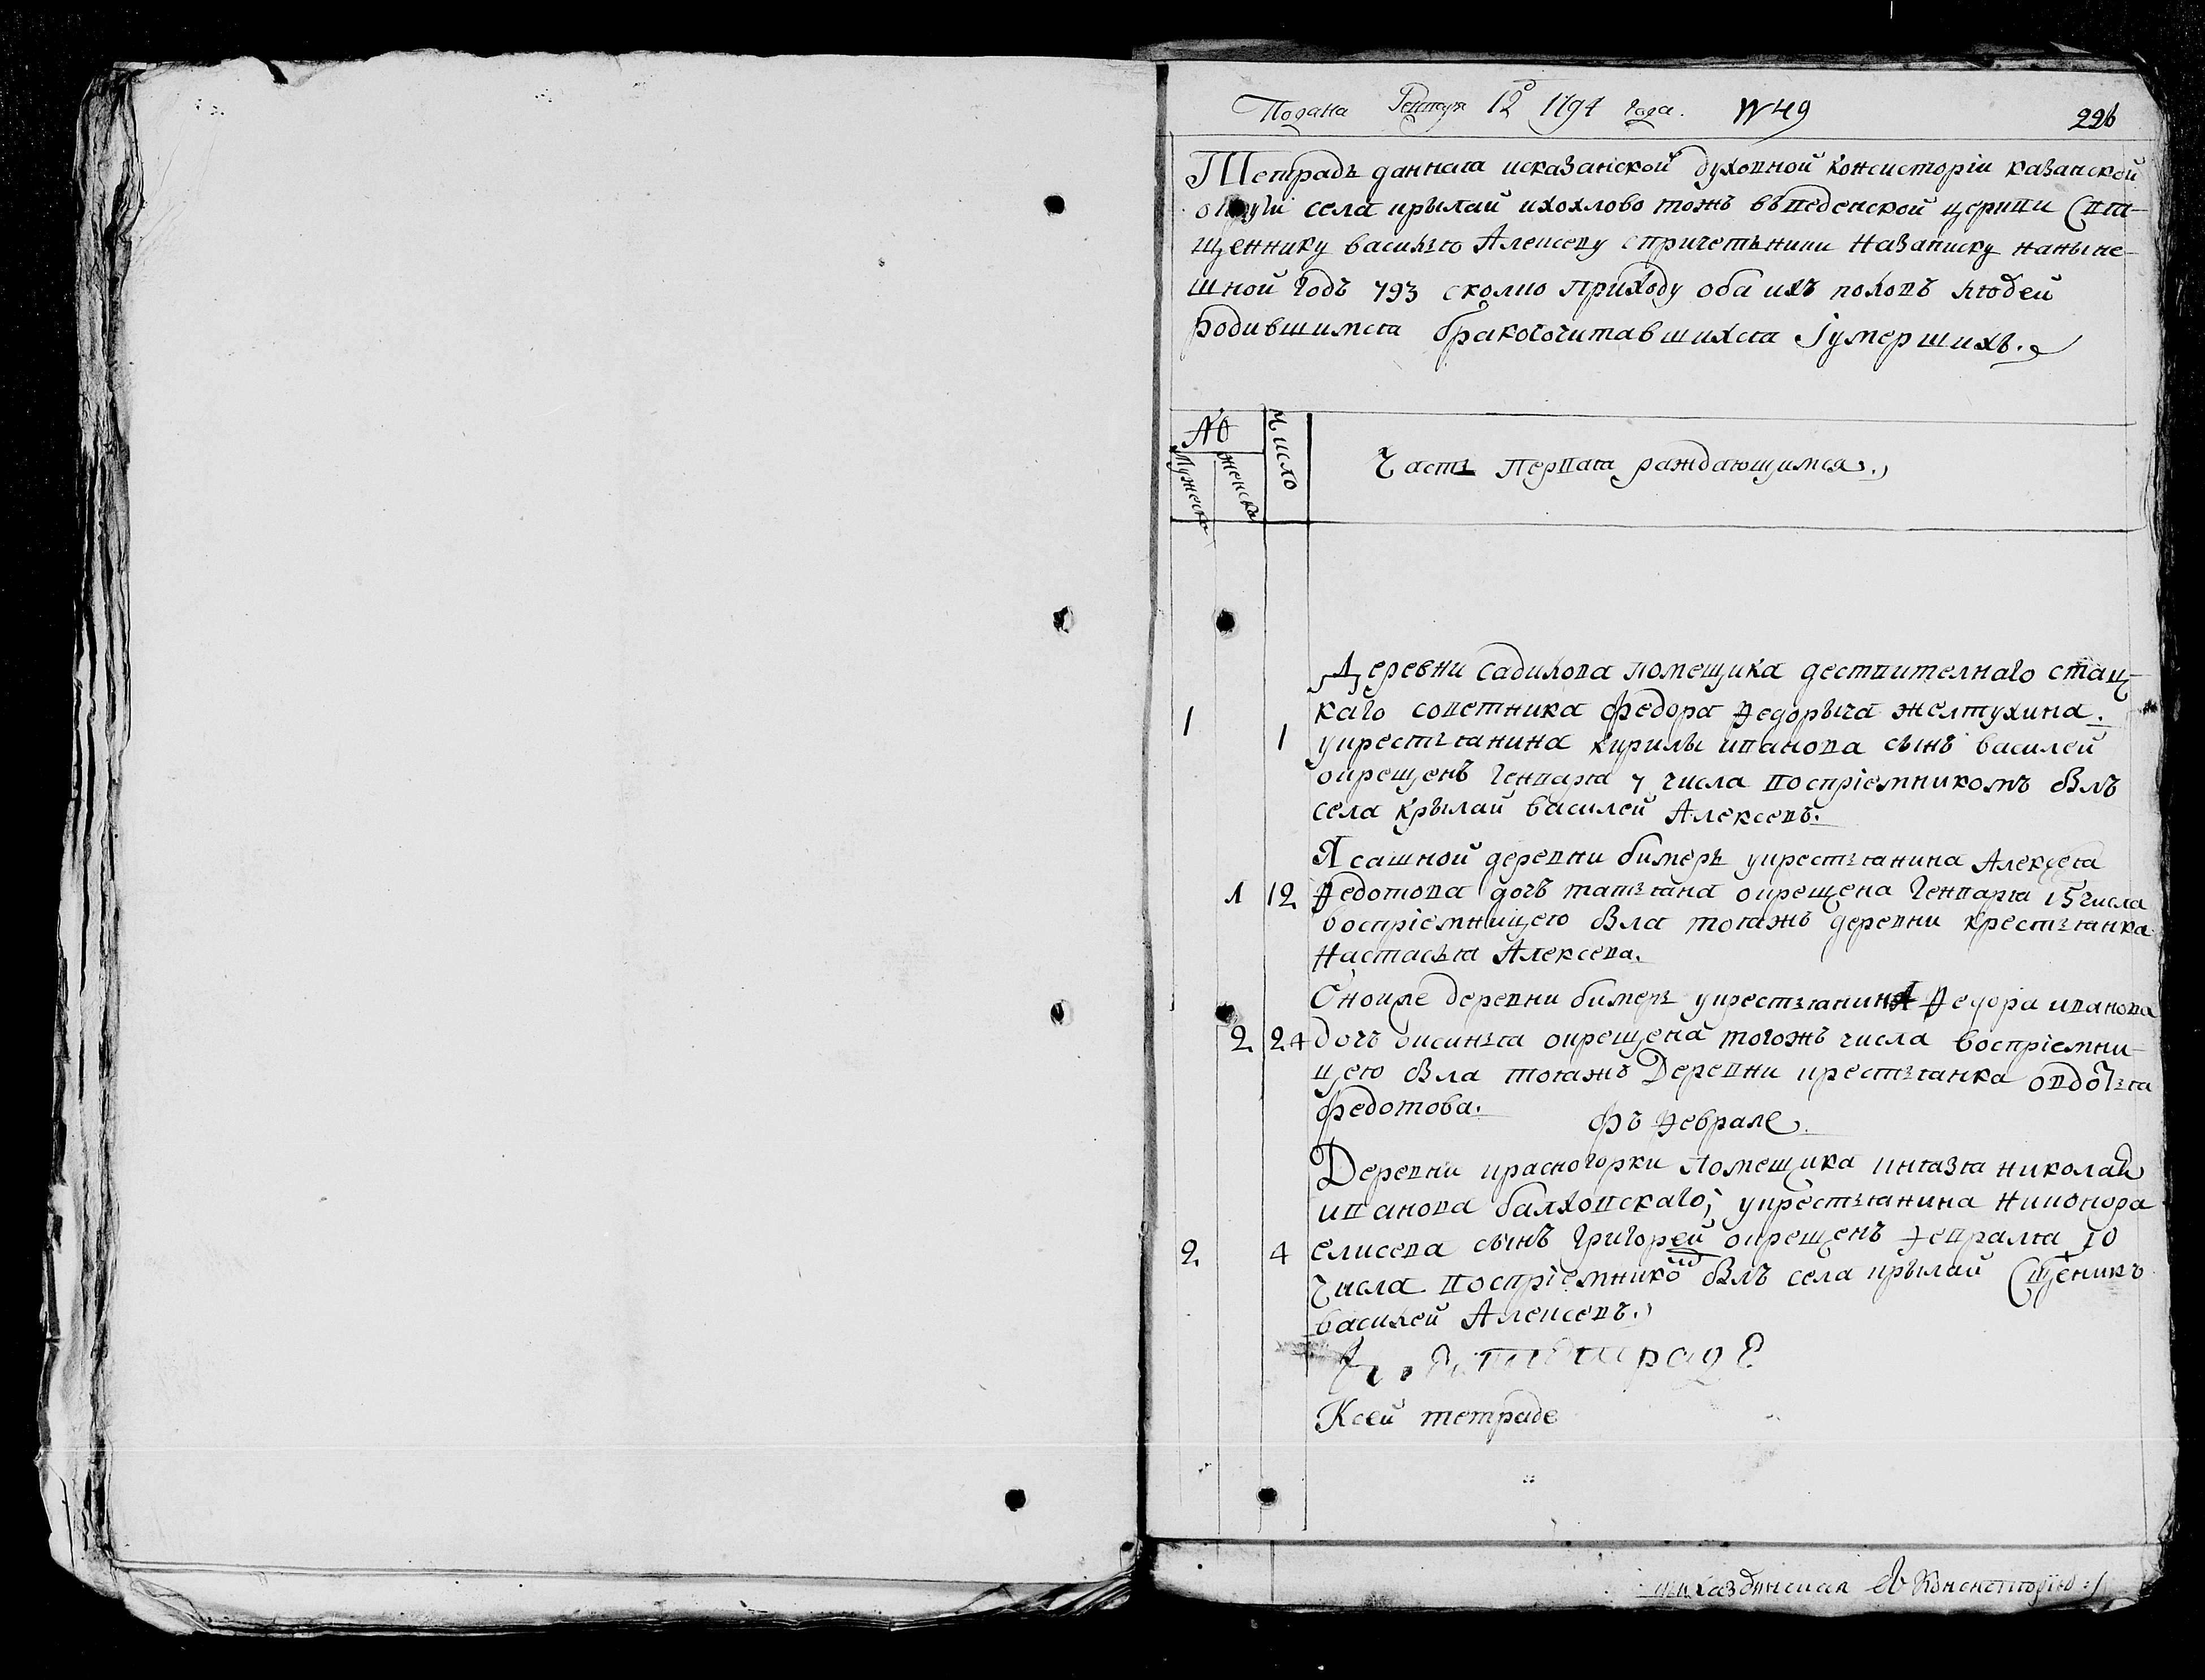 Подана Генваря 12º 1794 года. № 49
226
Тетрадь данная исказанской духовной консисторiи казанской
округи села крылай ихохлово тожъ въведенской церкви Свя-
щеннику василью Алексеву спричетьники Назаписку наныне-
шной годъ 793 сколко приходу обаихъ половъ людей
родившимся бракосочитавшихся Iумершихъ.
№ Число
Мужеска женска
Часть первая раждающимся.
Деревни садилова помещика дествителнаго стац-
каго советника федора федорыча желтухина.
1 1 укрестьянина кирилы иванова сынъ василей
окрещенъ Генваря 7 числа воспрiемникомъ былъ
села крылай василей Алексевъ.
Ясашной деревни бимерь укрестьянина Алексея
1 12 федотова дочь татьяна окрещена Генваря 15 числа
воспрiемницею была тояжъ деревни крестьянка
Настасья Алексева.
Оноиже деревни бимерь укрестьянина федора иванова
2 24 дочь аксинья окрещена тогожъ числа воспрiемни-
цею была тояжъ Деревни крестьянка овдотья
федотова.
фъ феврале.
Деревни красногорки помещика князя николая
иванова балховскаго, укрестьянина никонора
2 4 елисева сынъ григорей окрещенъ февраля 10
числа воспрiемнико былъ села крылай Сщеникъ
василей Алексевъ.
тетраде
Ксей тетраде
Консисторiю